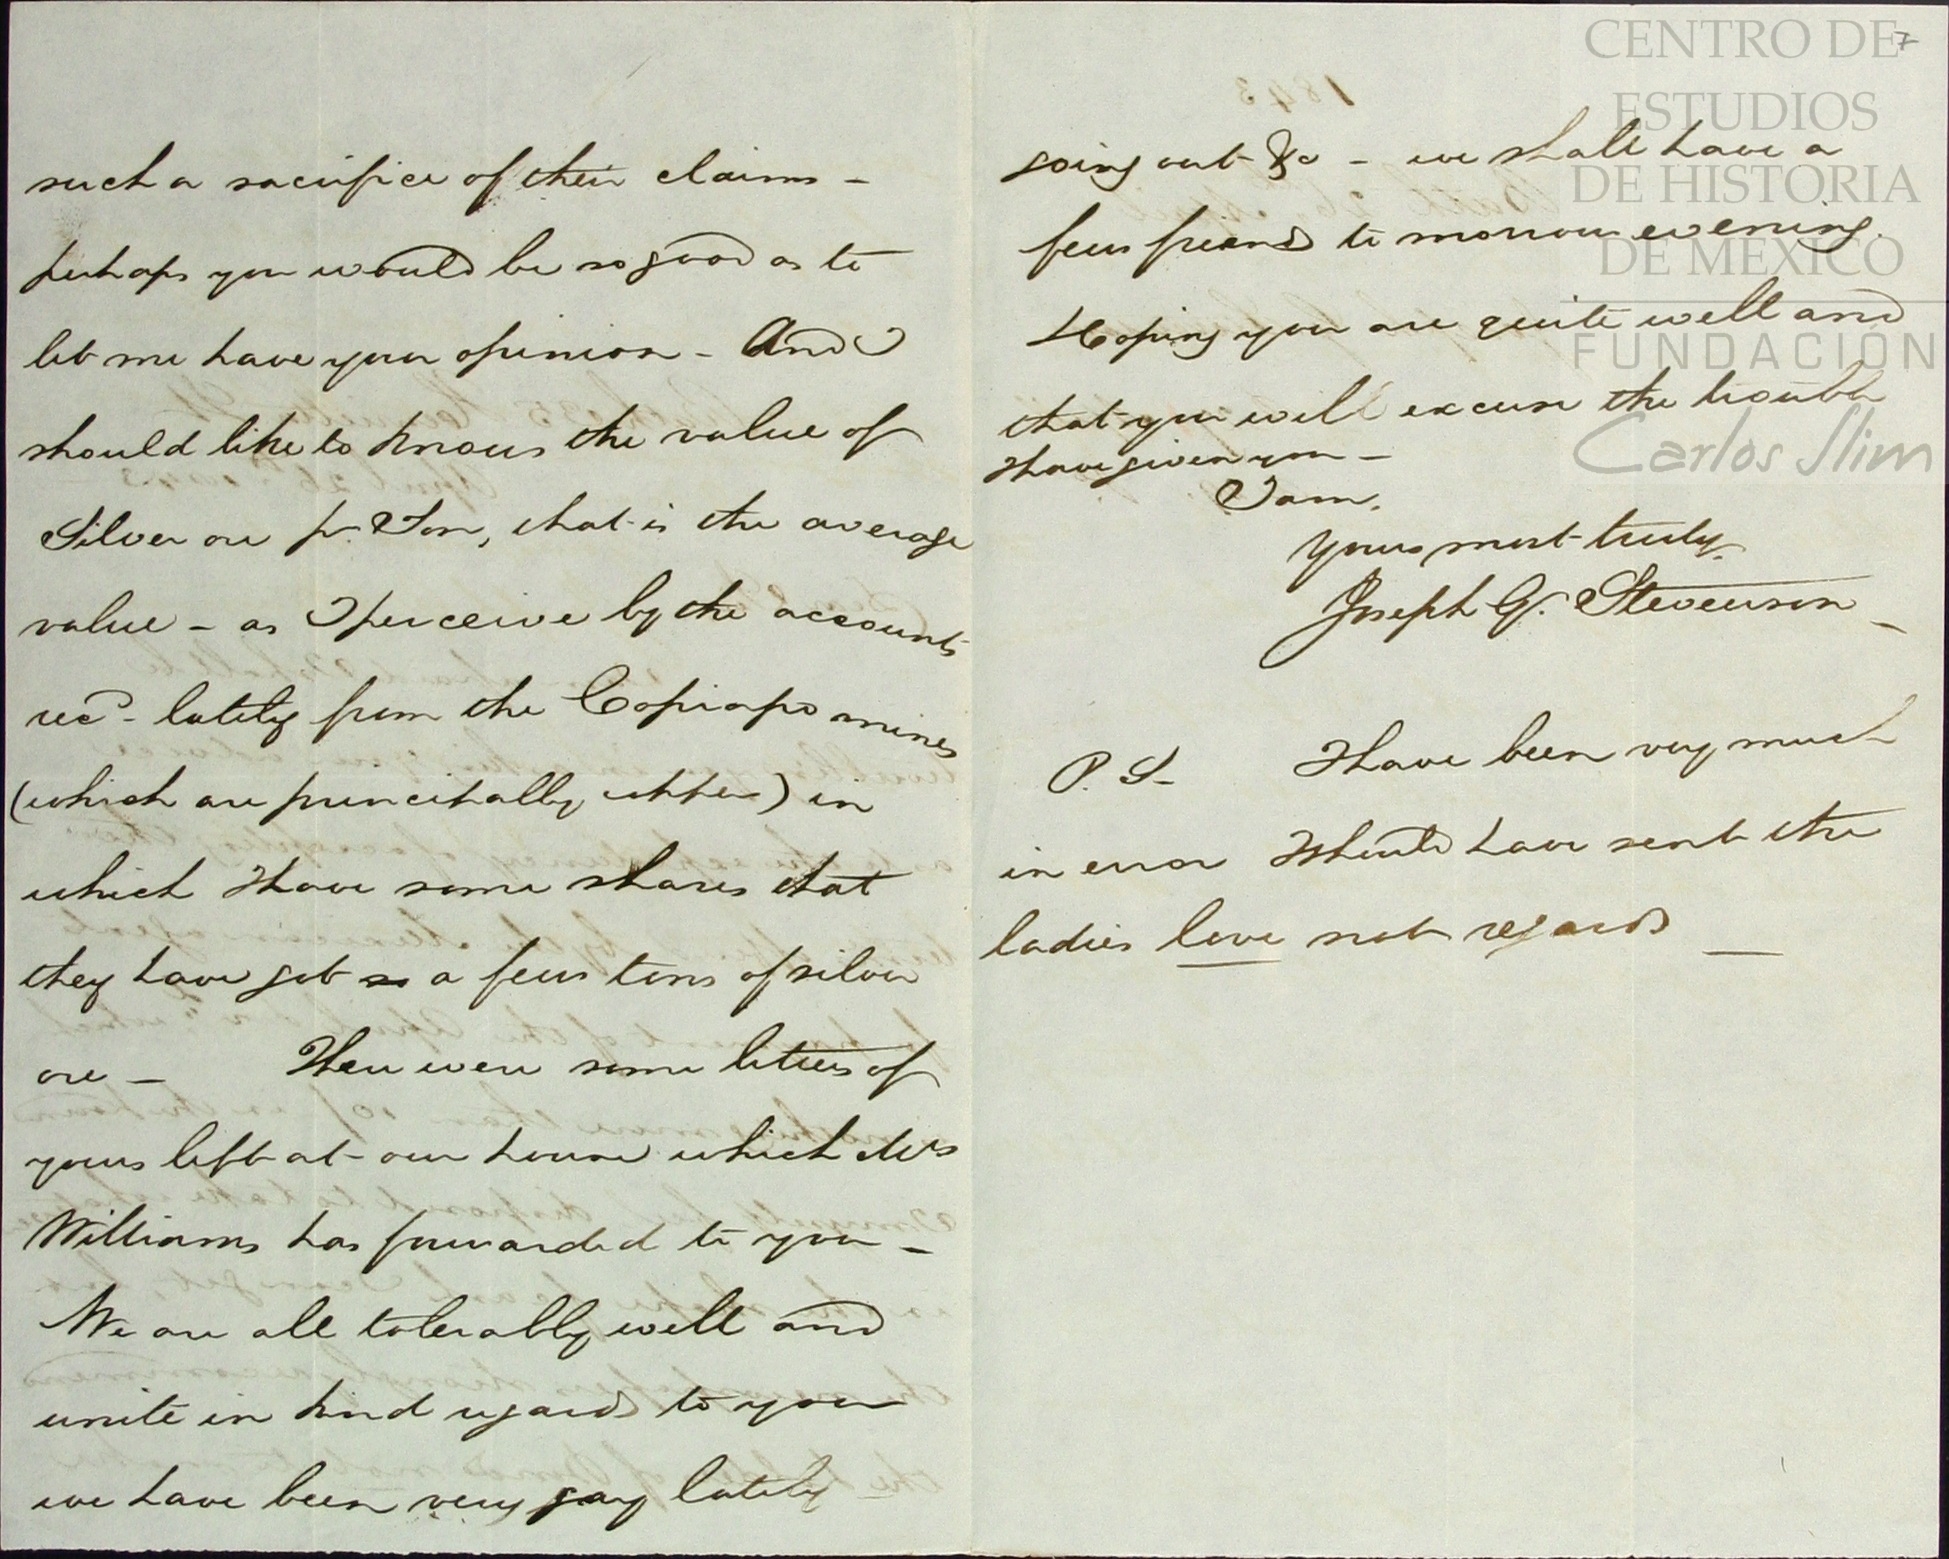 such a sacrifice of their claims -
perhaps you would be so good as to
let me have your opinion - And I
should like to know the value of
Silver ore pr Ton, that is the average
value - as I perceive by the accounts
recd - lately from the Copiapo mines
(which are principally copper) in
which I have some shares that
they have got a few tons of silver
ore - There were some letters of
yours left at our house which Mrs
Williams has forwarded to you -
We are all tolerably well and
unite in kind regards to you
we have been very gay lately
7
1843
going out &c - we shall have a
few friends to morrow evening.
Hoping you are quite well and
that you will excuse the trouble
I have given you -
I am,
Yours most truly.
Joseph G. Stevenson -
P.S - I have been very much
in error I should have sent the
ladies love not regards -
CENTRO DE
ESTUDIOS
DE HISTORIA
DE MEXICO
FUNDACIÓN
Carlos Slim